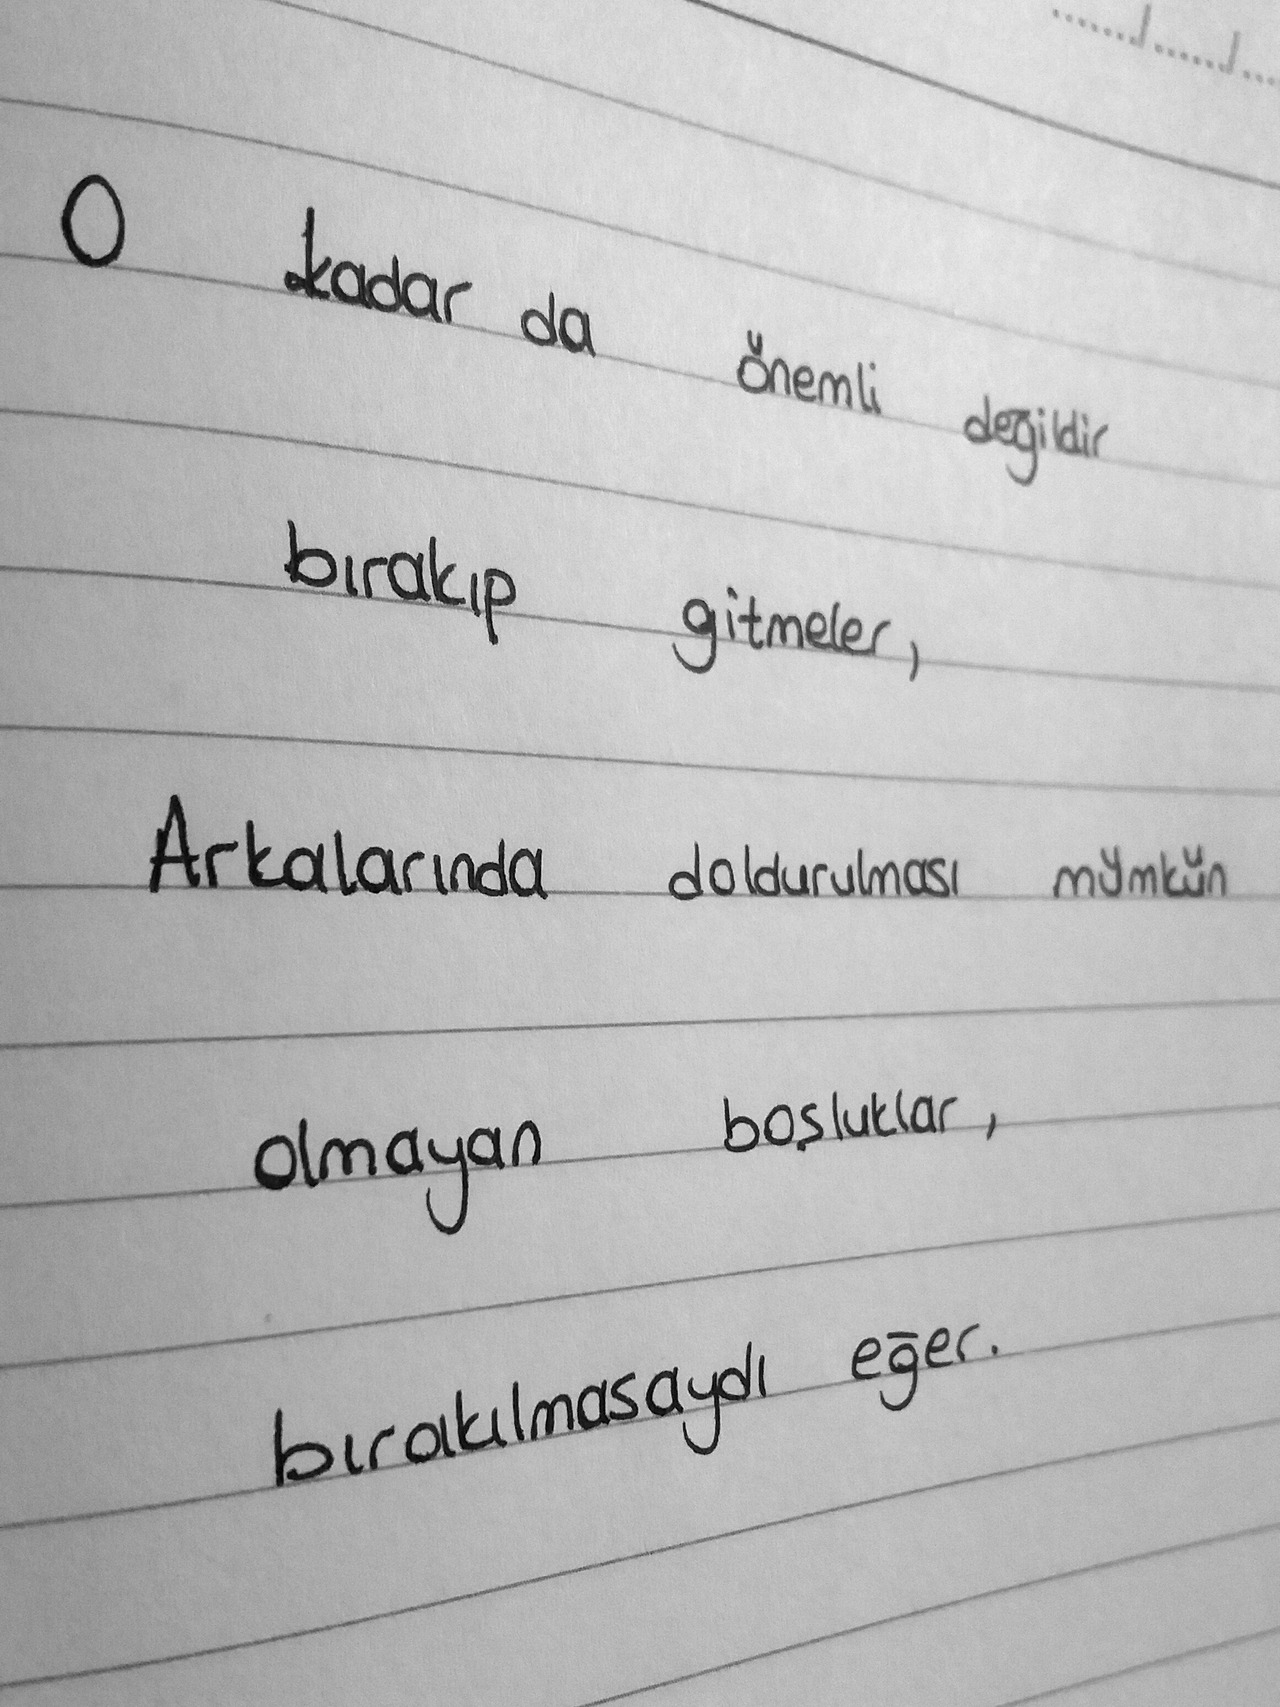 O kadar da önemli değildir
bırakıp gitmeler,
Arkalarında doldurulması mümkün
olmayan boşluklar,
bırakılmasaydı eğer.